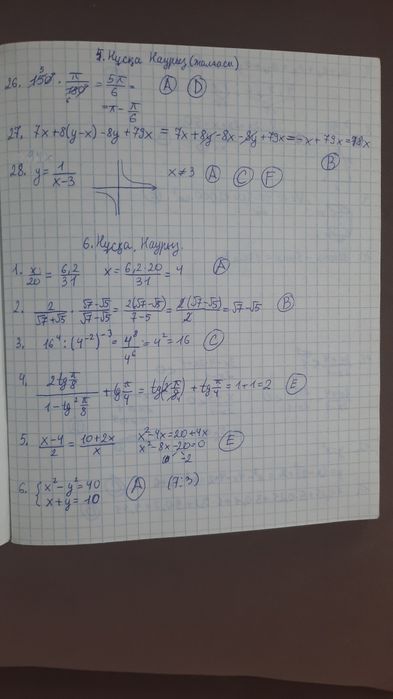 5. Нұсқа Наурыз (жалғасы)
26. 150° · π/180° = 5π/6 = (A) (D)
5 6
= π - π/6
27. 7x+8(y-x)-8y+79x = 7x+8y-8x-8y+79x=-x+79x=78x
(B)
28. y = 1/(x-3) x≠3 (A) (C) (F)
6. Нұсқа, Наурыз.
1. x/20 = 6,2/31 x = 6,2·20/31 = 4 (A)
2. 2/(√7+√5) · (√7-√5)/(√7-√5) = 2(√7-√5)/(7-5) = 2(√7-√5)/2 = √7-√5 (B)
3. 16⁴ : (4⁻²)⁻³ = 4⁸/4⁶ = 4² = 16 (C)
4. 2tg π/8 / (1-tg² π/8) + tg π/4 = tg(2·π/8) + tg π/4 = 1+1=2 (E)
5. (x-4)/2 = (10+2x)/x x²-4x=20+4x (E)
x²-8x-20=0
10 -2
6. { x²-y²=40 (A) (7;3)
x+y=10